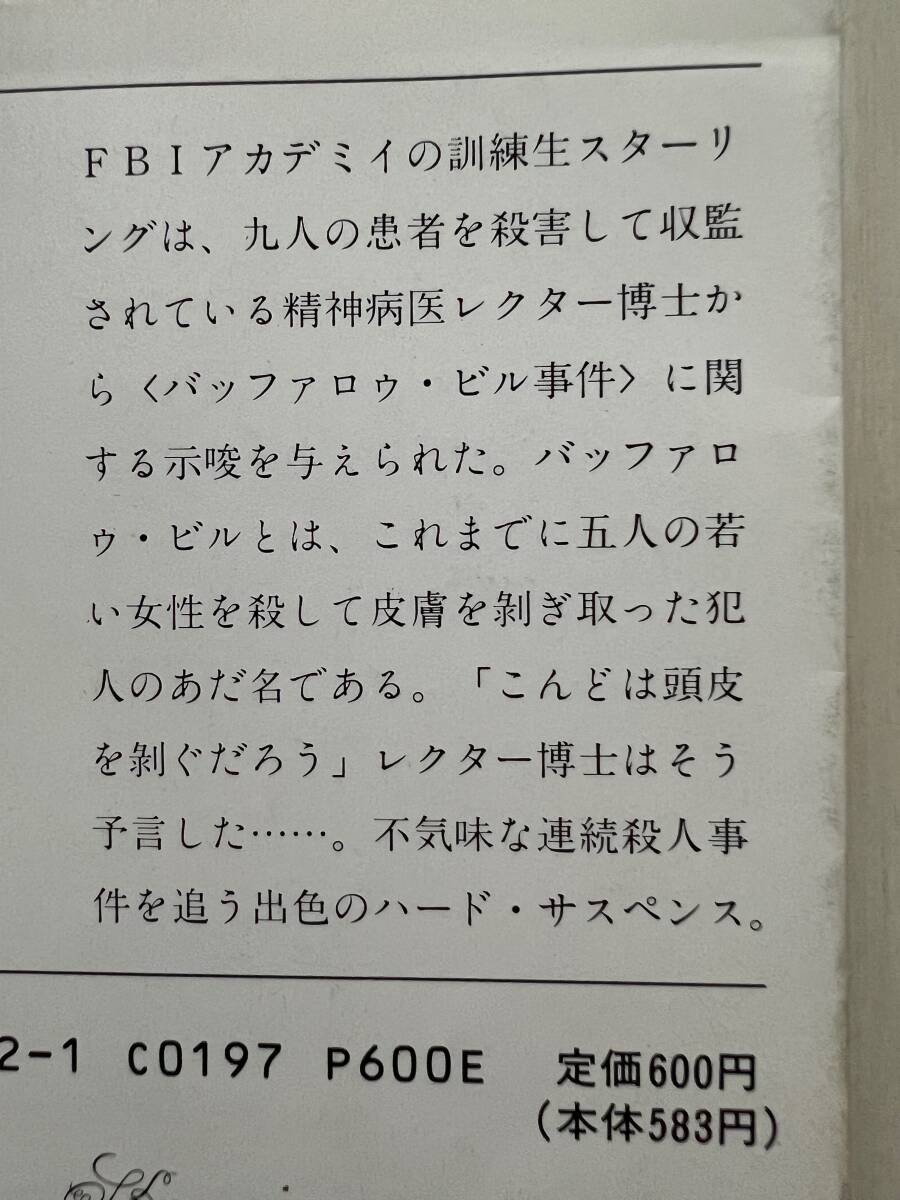 FBIアカデミイの訓練生スターリ
ングは、九人の患者を殺害して収監
されている精神病医レクター博士か
ら〈バッファロゥ・ビル事件〉に関
する示唆を与えられた。バッファロ
ゥ・ビルとは、これまでに五人の若
い女性を殺して皮膚を剝ぎ取った犯
人のあだ名である。「こんどは頭皮
を剝ぐだろう」レクター博士はそう
予言した……。不気味な連続殺人事
件を追う出色のハード・サスペンス。
2-1 C0197 P600E 定価600円
(本体583円)